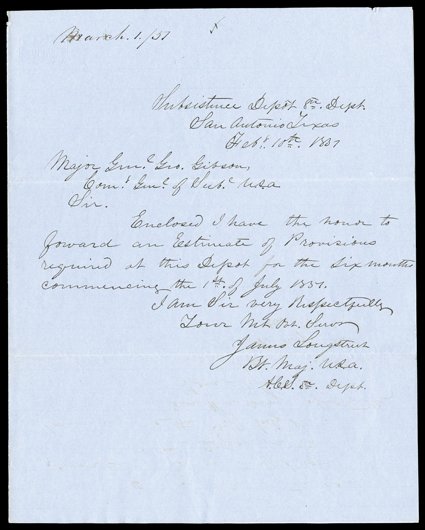 March. 1./51
Subsistence Depôt 8th Dept.
San Antonio Texas
Feby. 10th. 1851
Major Genl. Geo. Gibson,
Comy. Genl. of Subs. USA
Sir.
Enclosed I have the honor to
forward an Estimate of Provisions
required at this Depot for the six months
commencing the 1st. of July 1851.
I am Sir very Respectfully
Your Mt Obt. Servt
James Longstreet
Bt. Maj. USA.
A.C.S. 8th Dept.